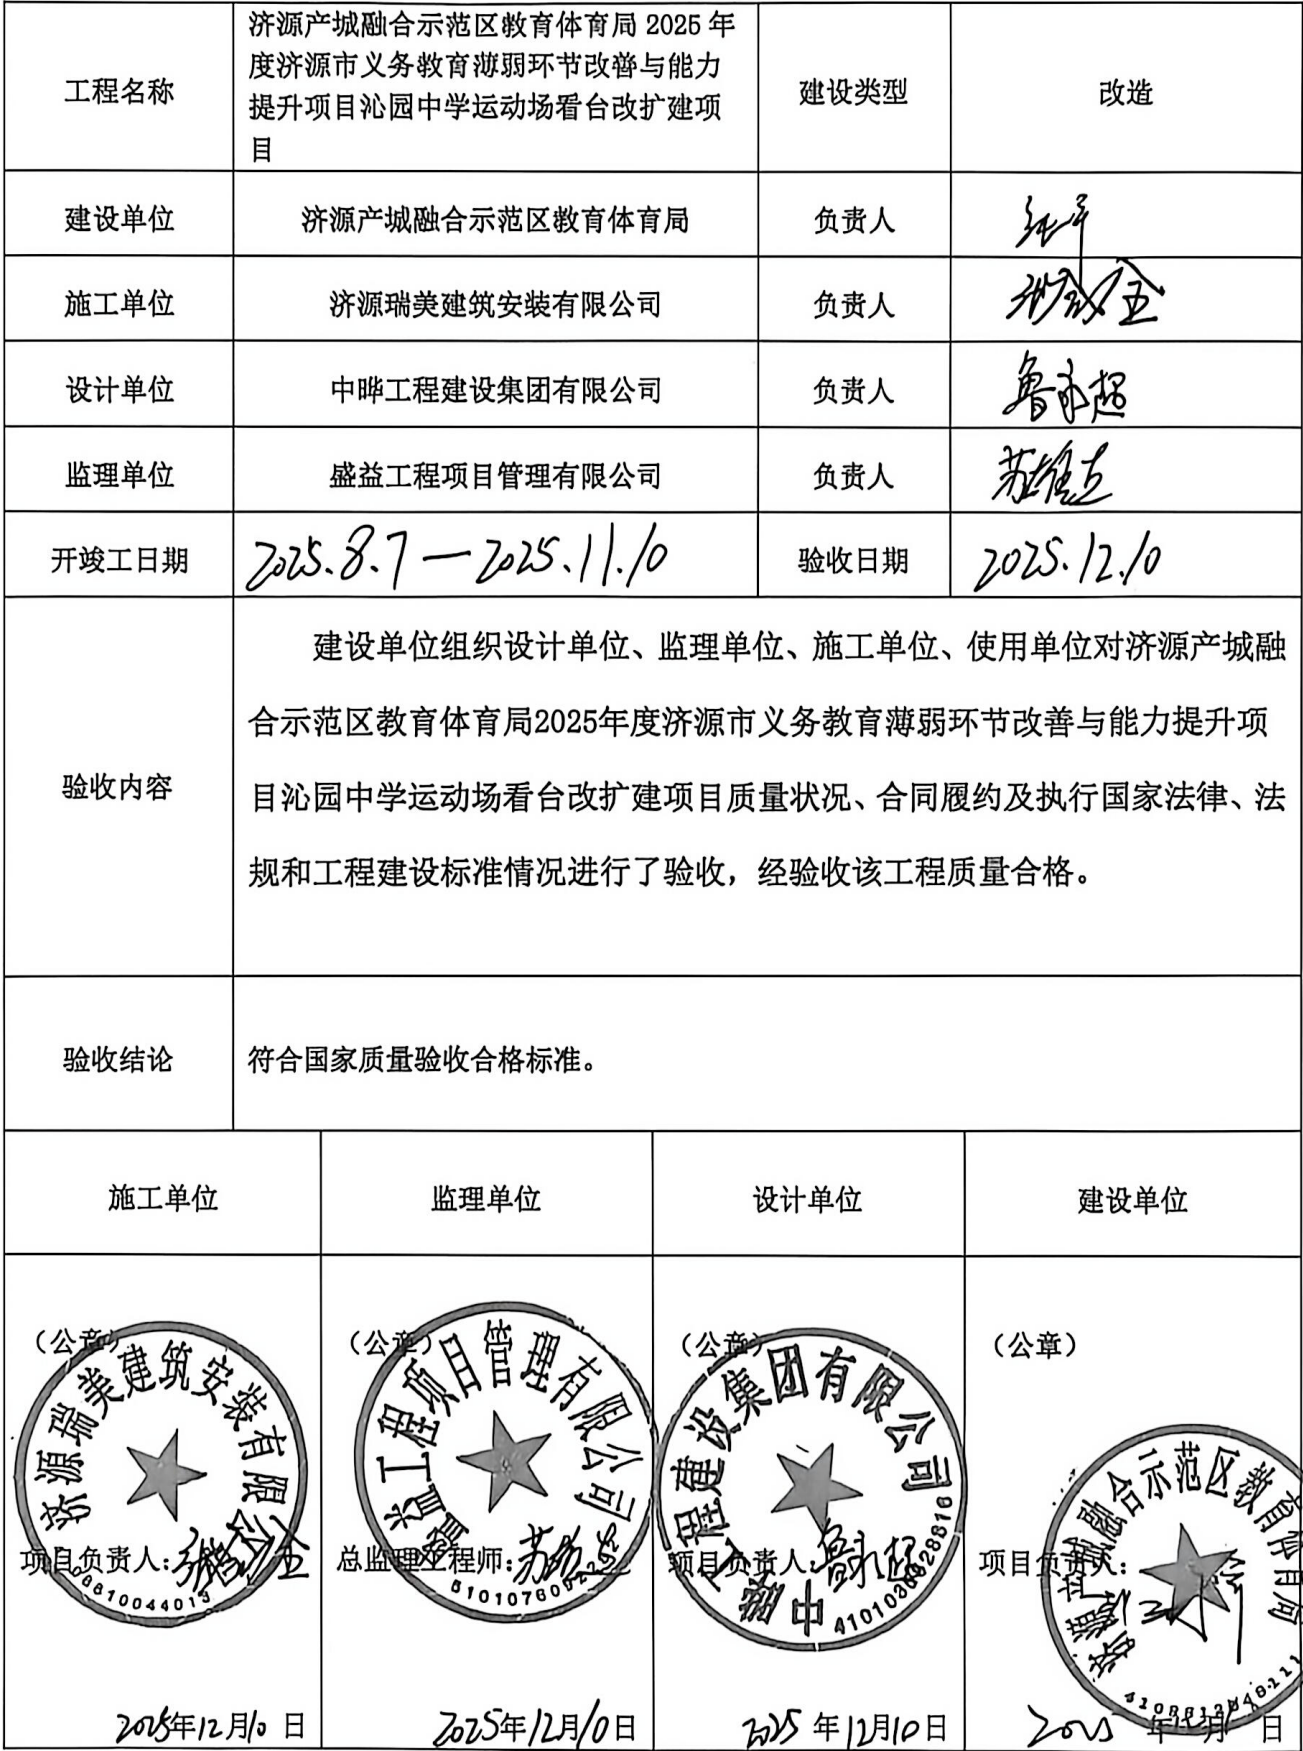 工程名称
济源产城融合示范区教育体育局 2025 年
度济源市义务教育薄弱环节改善与能力
提升项目沁园中学运动场看台改扩建项
目
建设类型
改造
建设单位
济源产城融合示范区教育体育局
负责人
施工单位
济源瑞美建筑安装有限公司
负责人
设计单位
中晔工程建设集团有限公司
负责人
鲁永超
监理单位
盛益工程项目管理有限公司
负责人
开竣工日期
2025.8.7—2025.11.10
验收日期
2025.12.10
验收内容
建设单位组织设计单位、监理单位、施工单位、使用单位对济源产城融
合示范区教育体育局2025年度济源市义务教育薄弱环节改善与能力提升项
目沁园中学运动场看台改扩建项目质量状况、合同履约及执行国家法律、法
规和工程建设标准情况进行了验收，经验收该工程质量合格。
验收结论
符合国家质量验收合格标准。
施工单位
监理单位
设计单位
建设单位
（公章）
济源瑞美建筑安装有限公司
项目负责人：
2025年12月10日
（公章）
盛益工程项目管理有限公司
总监理工程师：
2025年12月10日
（公章）
中晔工程建设集团有限公司
项目负责人：鲁永超
2025年12月10日
（公章）
济源产城融合示范区教育体育局
项目负责人：
2025年12月 日